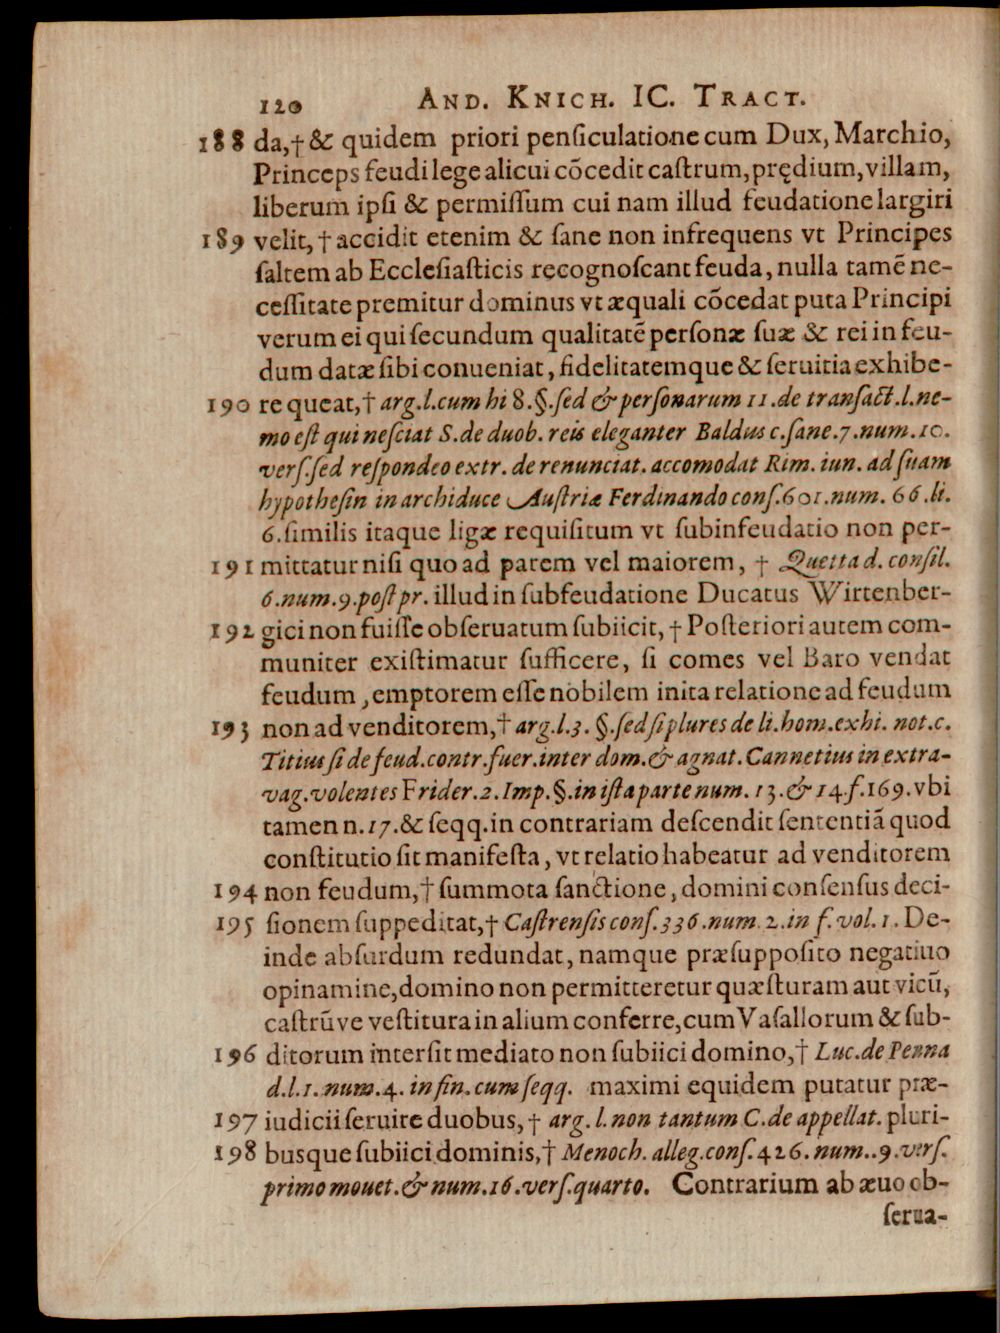 120 AND. KNICH. IC. TRACT.
188 da,† & quidem priori penſiculatione cum Dux, Marchio,
Princeps feudi lege alicui cõcedit caſtrum, prędium, villam,
liberum ipſi & permiſſum cui nam illud feudatione largiri
189 velit, † accidit etenim & ſane non infrequens vt Principes
ſaltem ab Eccleſiaſticis recognoſcant feuda, nulla tamẽ ne-
ceſſitate premitur dominus vt æquali cõcedat puta Principi
verum ei qui ſecundum qualitatẽ perſonæ ſuæ & rei in feu-
dum datæ ſibi conueniat, fidelitatemque & ſeruitia exhibe-
190 re queat, † arg. l. cum hi 8. §. ſed & perſonarum 11. de tranſact. l. ne-
mo eſt qui neſciat S. de duob. reis eleganter Baldus c. ſane. 7. num. 10.
verſ. ſed reſpondeo extr. de renunciat. accomodat Rim. iun. ad ſuam
hypotheſin in archiduce Auſtriæ Ferdinando conſ. 601. num. 66. li.
6. ſimilis itaque ligæ requiſitum vt ſubinfeudatio non per-
191 mittatur niſi quo ad parem vel maiorem, † Quetta d. conſil.
6. num. 9. poſt pr. illud in ſubfeudatione Ducatus Wirtenber-
192 gici non fuiſſe obſeruatum ſubiicit, † Poſteriori autem com-
muniter exiſtimatur ſufficere, ſi comes vel Baro vendat
feudum, emptorem eſſe nobilem inita relatione ad feudum
193 non ad venditorem, † arg. l. 3. §. ſed ſi plures de li. hom. exhi. not. c.
Titius ſi de feud. contr. fuer. inter dom. & agnat. Cannetius in extra-
vag. volentes Frider. 2. Imp. §. in iſta parte num. 13. & 14. f. 169. vbi
tamen n. 17. & ſeqq. in contrariam deſcendit ſententiã quod
conſtitutio ſit manifeſta, vt relatio habeatur ad venditorem
194 non feudum, † ſummota ſanctione, domini conſenſus deci-
195 ſionem ſuppeditat, † Caſtrenſis conſ. 336. num. 2. in f. vol. 1. De-
inde abſurdum redundat, namque præſuppoſito negatiuo
opinamine, domino non permitteretur quæſturam aut vicũ,
caſtrũve veſtitura in alium conferre, cum Vaſallorum & ſub-
196 ditorum interſit mediato non ſubiici domino, † Luc. de Penna
d. l. 1. num. 4. in fin. cum ſeqq. maximi equidem putatur præ-
197 iudicii ſeruire duobus, † arg. l. non tantum C. de appellat. pluri-
198 busque ſubiici dominis, † Menoch. alleg. conſ. 426. num.. 9. verſ.
primo mouet. & num. 16. verſ. quarto. Contrarium ab æuo ob-
ſerua-